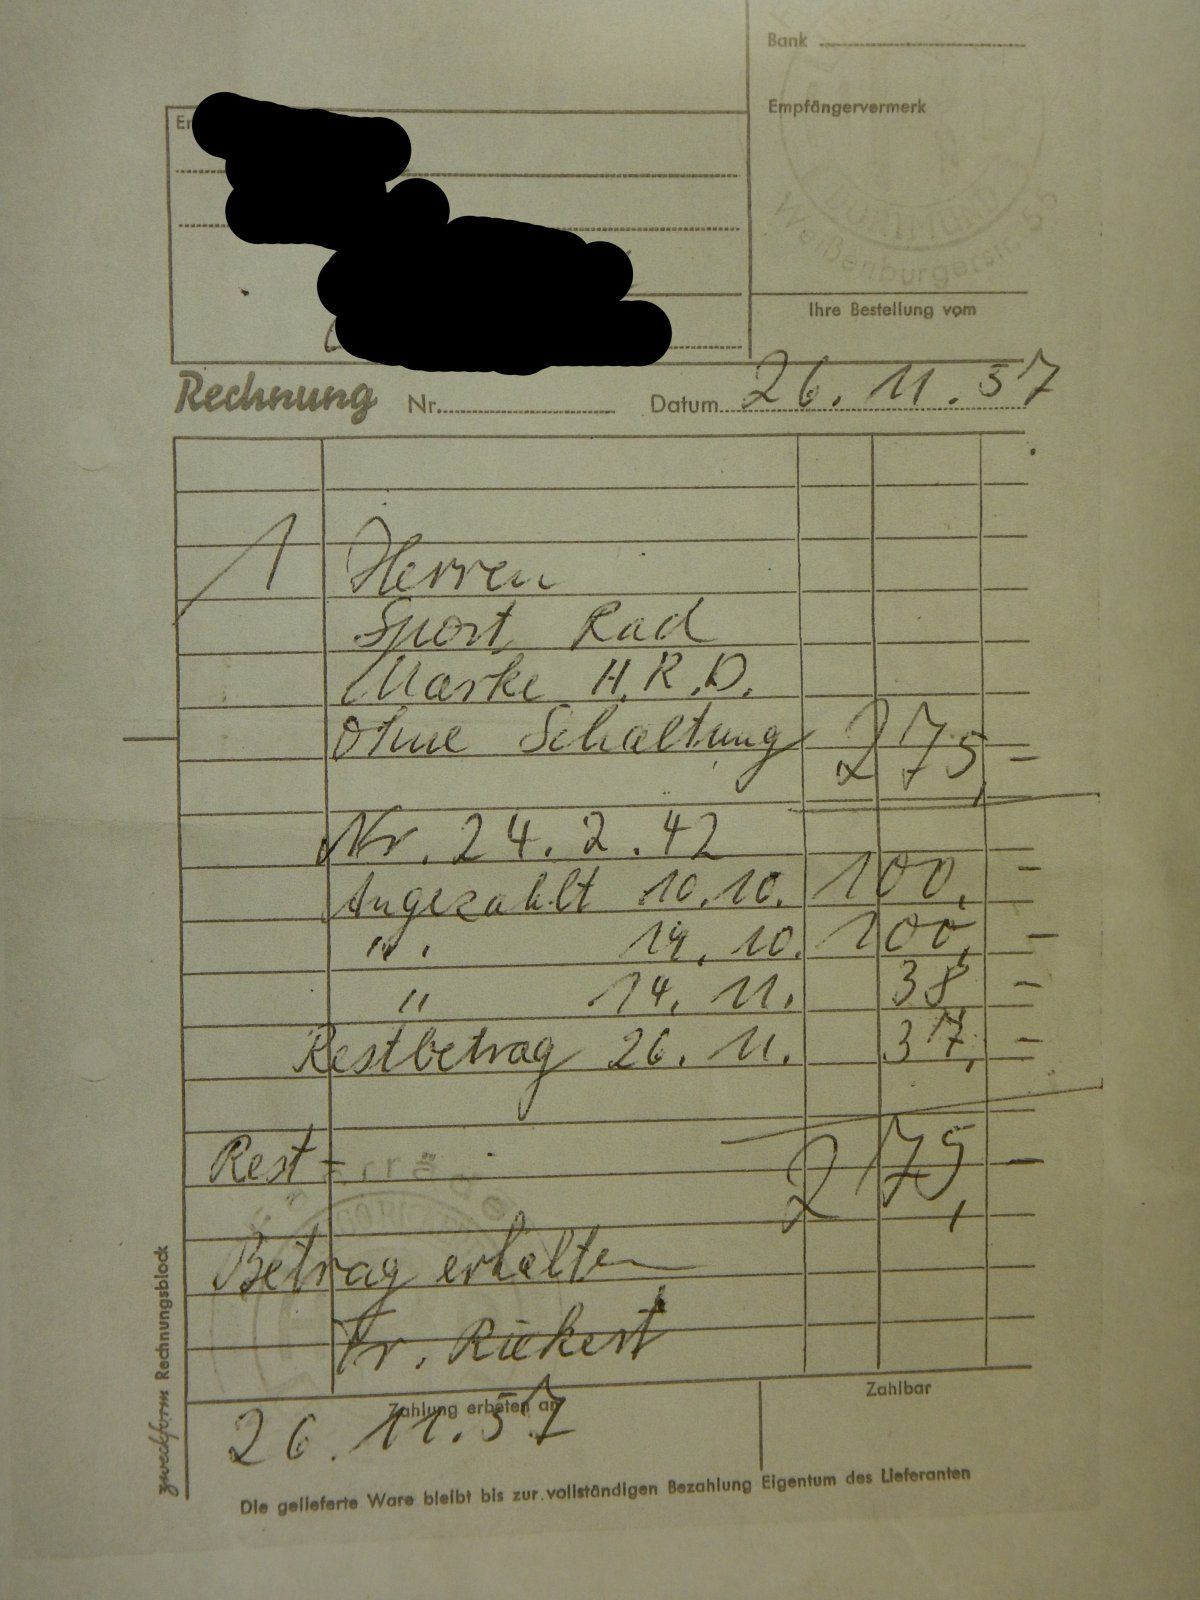 Bank
Empfängervermerk
Dortmund
Weißenburgerstr. 55
Ihre Bestellung vom
Rechnung Nr. Datum 26. 11. 57
1 Herren
Sport Rad
Marke H.R.D.
Ohne Schaltung 275,-
Nr. 24.2.42
Angezahlt 10.10. 100,-
" 14. 10. 100,-
" 14. 11. 38 -
Restbetrag 26. 11. 37,-
Rest - 275,-
Betrag erhalten
Fr. Rickert
Zahlung erbeten an
Zahlbar
26. 11. 57
Die gelieferte Ware bleibt bis zur vollständigen Bezahlung Eigentum des Lieferanten
zweckform Rechnungsblock